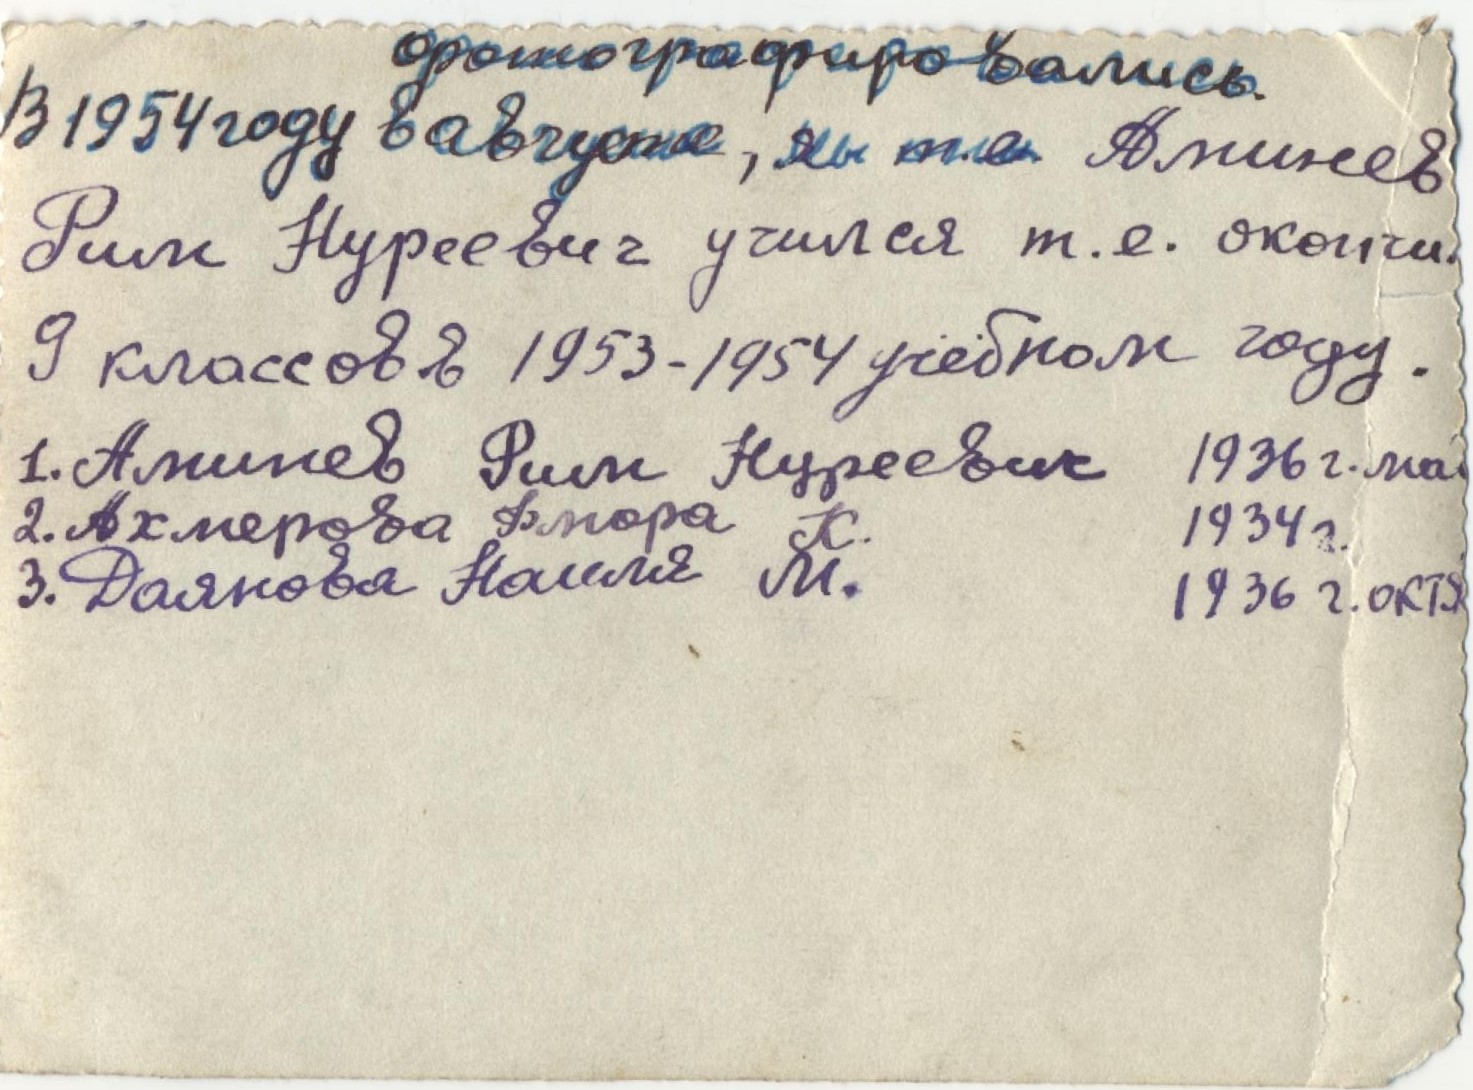 фотографировались.
В 1954 году в августе, мы т.е. Аминев
Рим Нуреевич учился т.е. окончи
9 классов в 1953-1954 учебном году.
1. Аминев Рим Нуреевич 1936 г. май
2. Ахмерова К. 1934 г.
3. Даянова Наиля М. 1936 г. октя